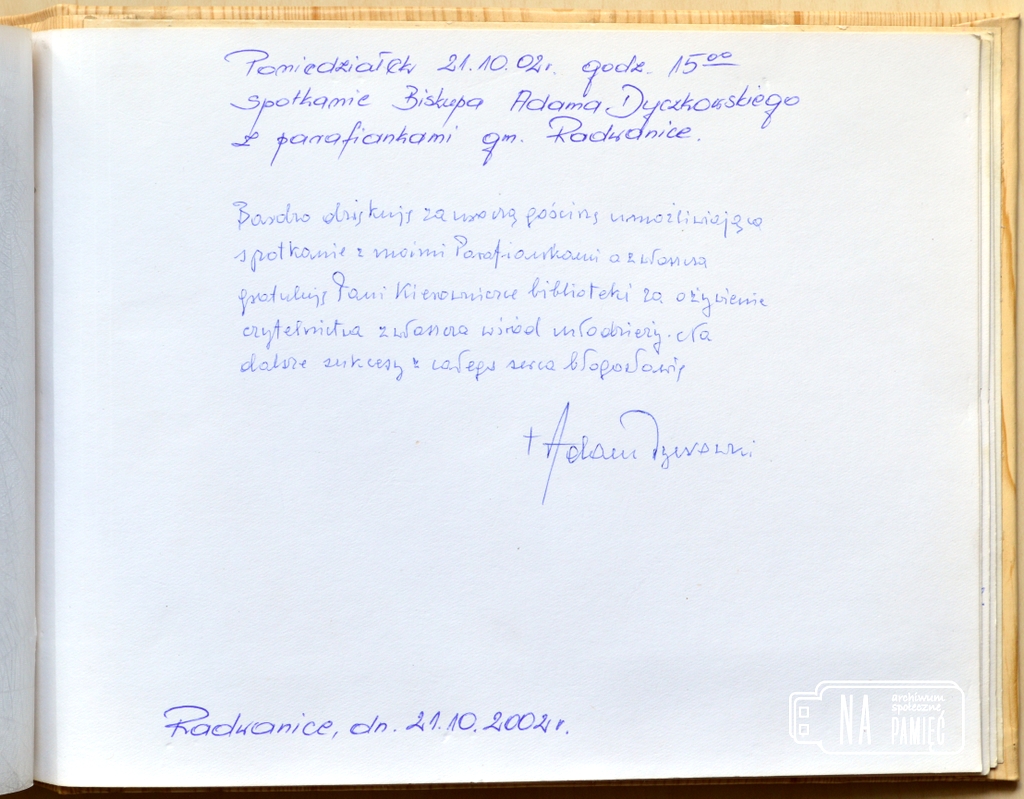 Poniedziałek 21.10.02r. godz. 15⁰⁰
spotkanie Biskupa Adama Dyczkowskiego
z parafiankami gm. Radwanice.
Bardzo dziękuję za uroczą gościnę umożliwiającą
spotkanie z moimi Parafiankami a zwłaszcza
gratuluję Pani Kierowniczce biblioteki za ożywienie
czytelnictwa zwłaszcza wśród młodzieży. Na
dalsze sukcesy z całego serca błogosławię
+ Adam Dyczkowski
Radwanice, dn. 21.10.2002r.
NA
archiwum
społeczne
PAMIĘĆ